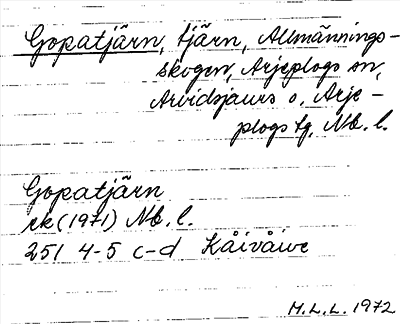 Gopatjärn, tjärn, Allmännings-
skogen, Arjeplogs sn,
Arvidsjaurs o. Arje-
plogs tg, Nb. l.
Gopatjärn
rk (1971) Nb. l.
251 4-5 c-d Kåivåive
M.L.L. 1972